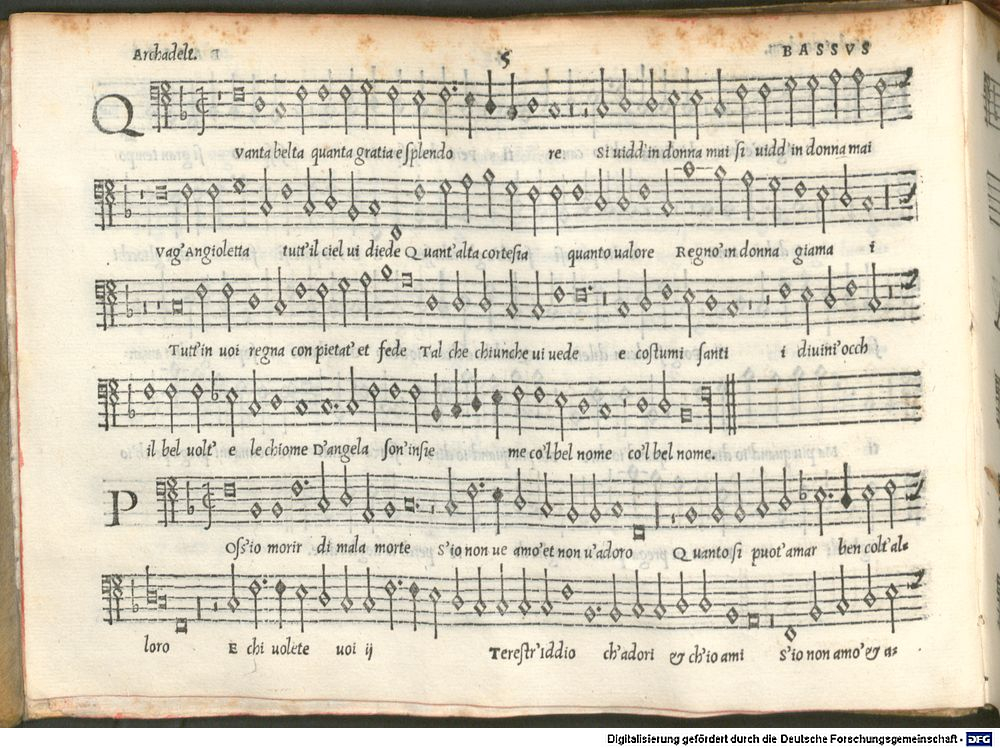 Archadelt. 5 BASSVS
Q Vanta belta quanta gratia e splendo re Si uidd'in donna mai si uidd'in donna mai
Vag'Angioletta tutt'il ciel ui diede Quant'alta cortesia quanto ualore Regno'in donna giama i
Tutt'in uoi regna con pietat'et fede Tal che chiunche ui uede e costumi santi i diuini'occh
il bel uolt' e le chiome D'angela son'insie me co'l bel nome co'l bel nome.
P Oss'io morir di mala morte S'io non ue amo'et non u'adoro Quanto si puot'amar ben colt'al=
loro E chi uolete uoi ij Terestr'Iddio ch'adori & ch'io ami S'io non amo'& a=
Digitalisierung gefördert durch die Deutsche Forschungsgemeinschaft - DFG